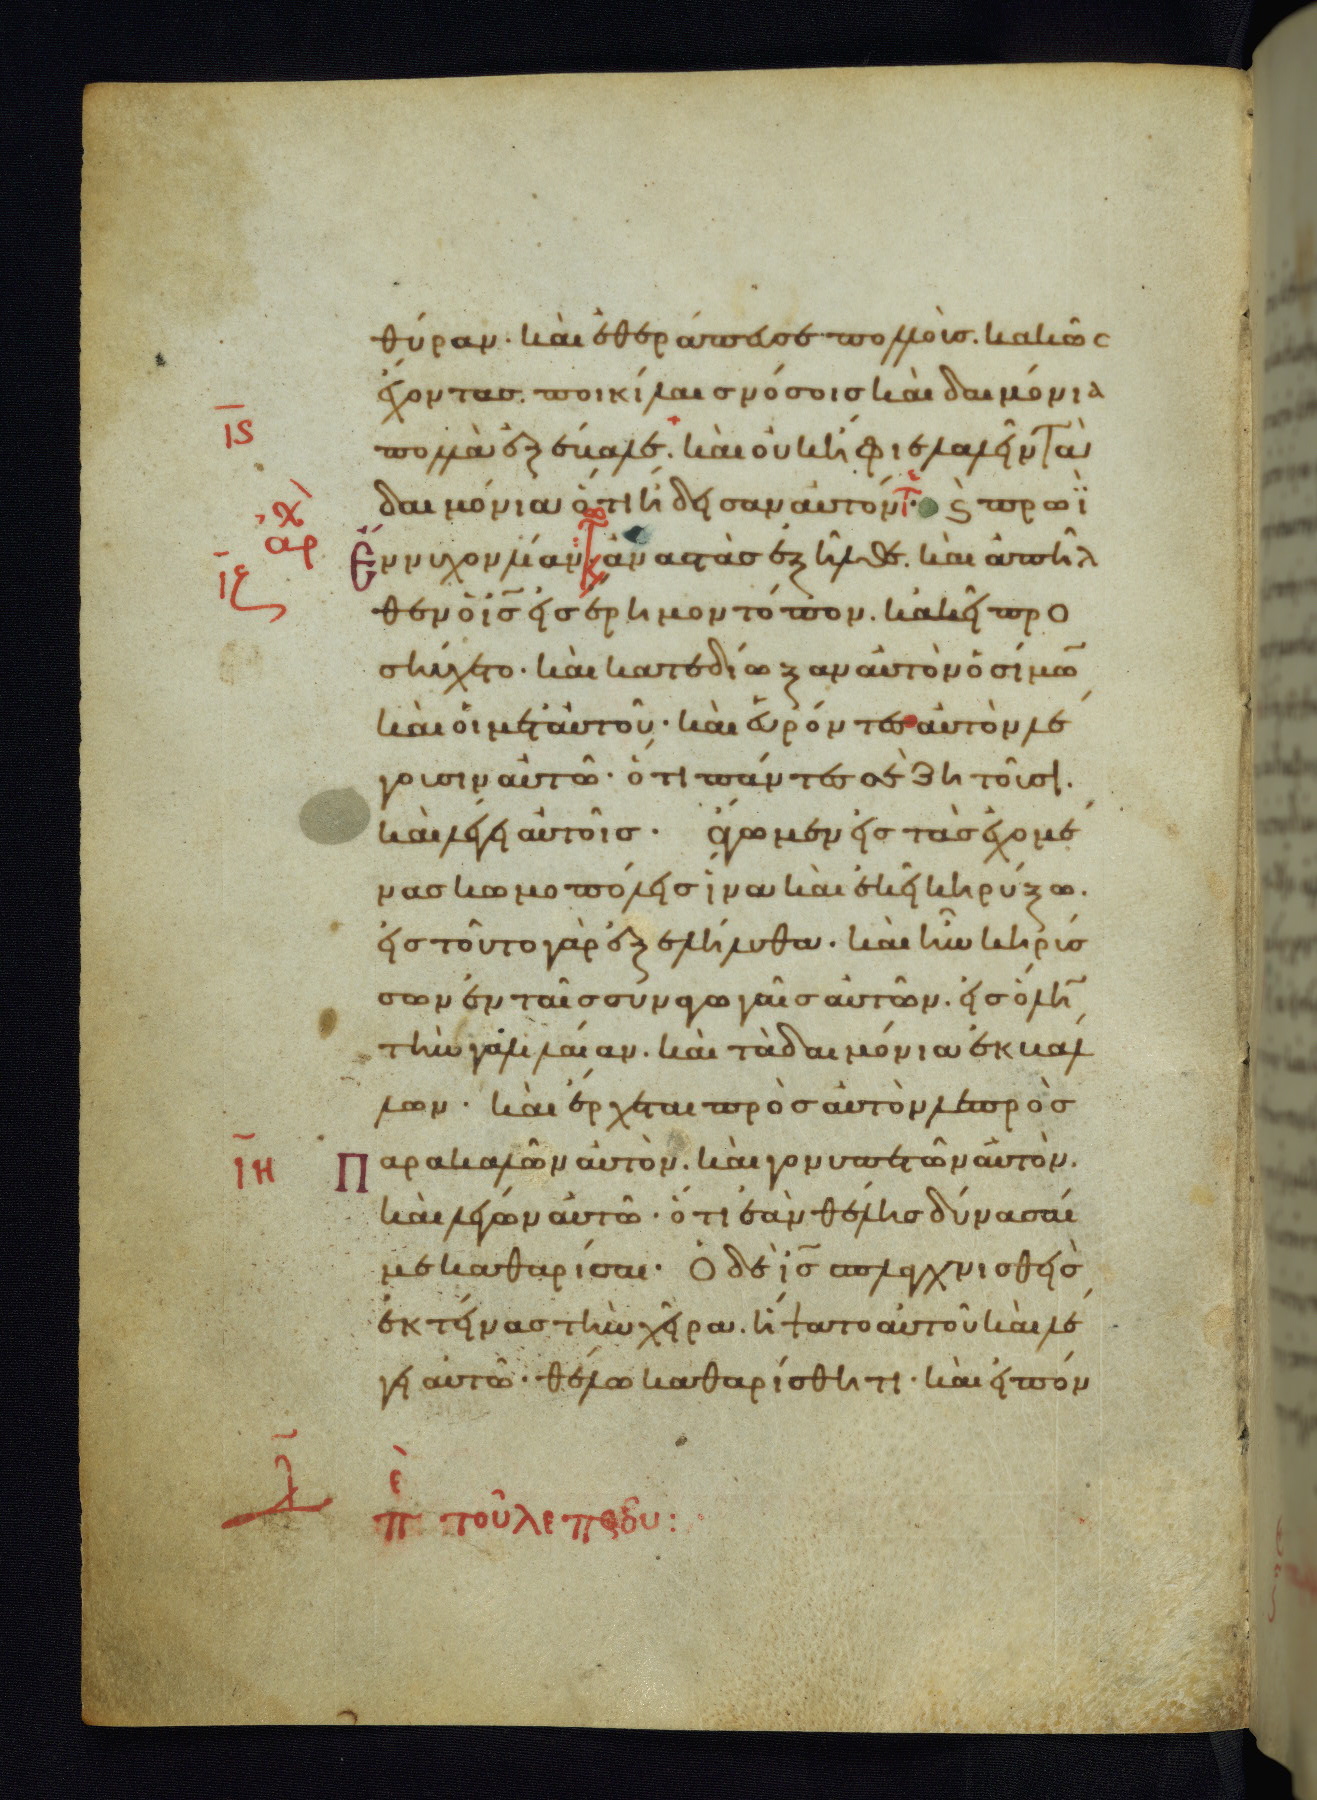 θύραν· καὶ ἐθεράπευσε πολλοὺς κακῶς
ἔχοντας ποικίλαις νόσοις καὶ δαιμόνια
ιϛ
πολλὰ ἐξέβαλε. καὶ οὐκ ἤφιε λαλεῖν τὰ
δαιμόνια ὅτι ᾔδεισαν αὐτόν· ϛ πρωῒ
αρχ
ιζ
ἔννυχον λίαν ἀναστὰς ἐξῆλθε. καὶ ἀπῆλ
θεν ὁ ἰς εἰς ἔρημον τόπον. κἀκεῖ προ
σηύχετο· καὶ κατεδίωξαν αὐτὸν ὁ σίμων
καὶ οἱ μετ' αὐτοῦ· καὶ εὑρόντες αὐτὸν λέ
γουσιν αὐτῶ· ὅτι πάντες σε ζητοῦσι.
καὶ λέγει αὐτοῖς· ἄγωμεν εἰς τὰς ἐχομέ
νας κωμοπόλεις ἵνα καὶ ἐκεῖ κηρύξω.
εἰς τοῦτο γὰρ ἐξελήλυθα· καὶ ἦν κηρύσ
σων ἐν ταῖς συναγωγαῖς αὐτῶν. εἰς ὅλην
τὴν γαλιλαίαν. καὶ τὰ δαιμόνια ἐκβάλ
λων· καὶ ἔρχεται πρὸς αὐτὸν λεπρὸς
ιη
παρακαλῶν αὐτὸν. καὶ γονυπετῶν αὐτὸν.
καὶ λέγων αὐτῶ· ὅτι ἐὰν θέλης δύνασαί
με καθαρίσαι· Ὁ δὲ ἰς σπλαγχνισθεὶς
ἐκτείνας τὴν χεῖρα. ἥψατο αὐτοῦ καὶ λέ
γει αὐτῶ· θέλω καθαρίσθητι· καὶ εἰπόν
ε
π τοῦ λεπροῦ: